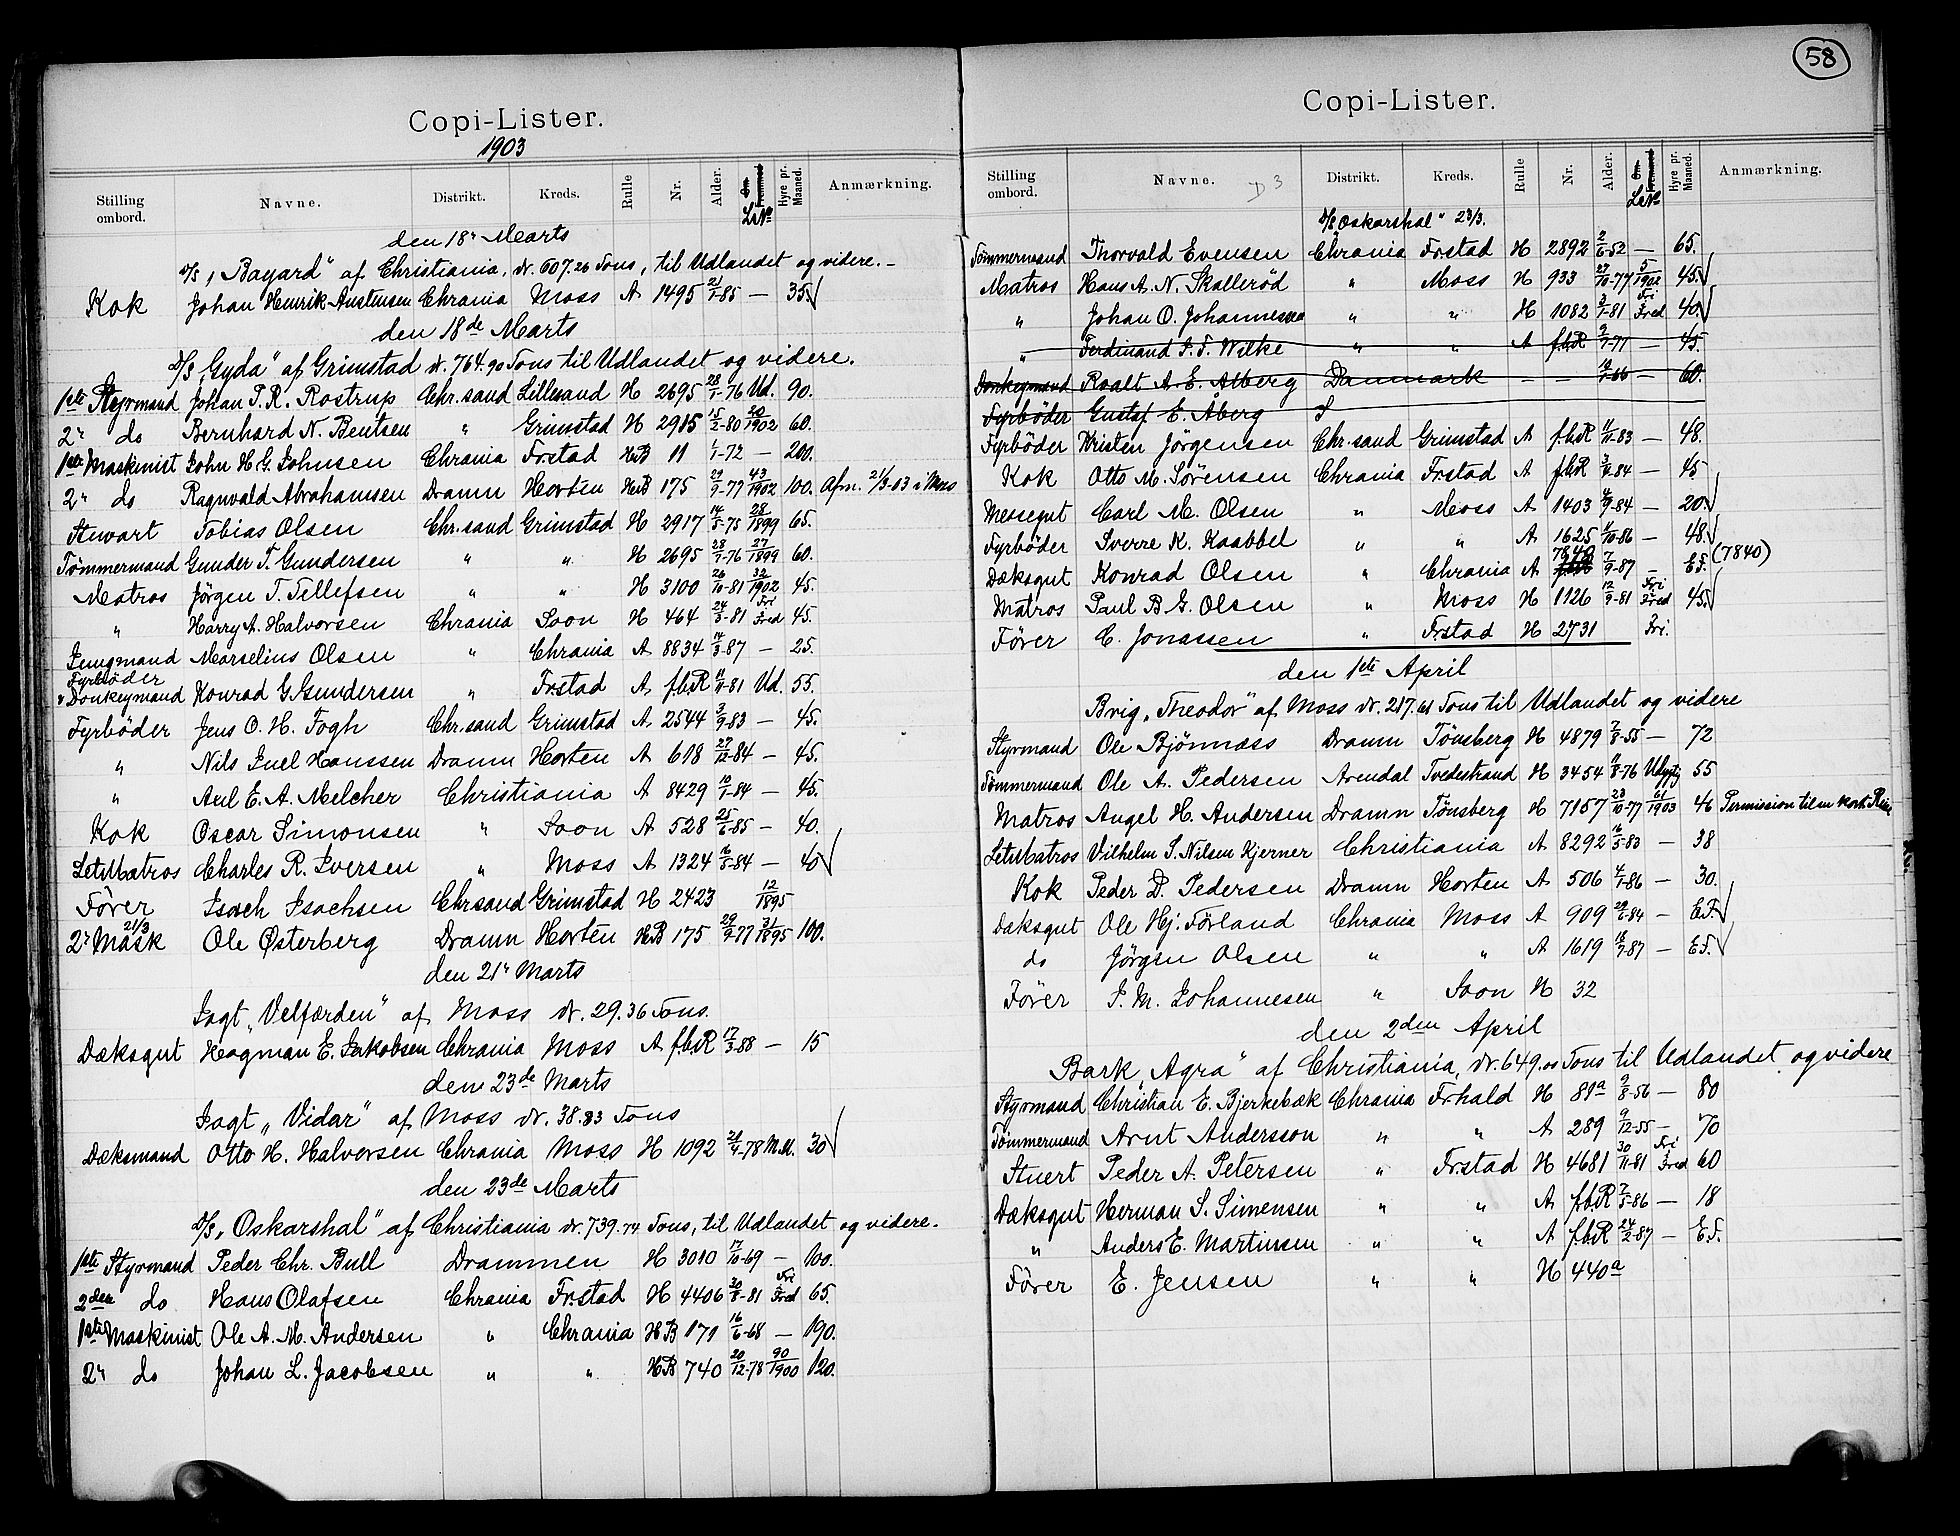 Copi-Lister.
1903
Stilling ombord. Navne. Distrikt. Kreds. Rulle Nr. Alder. Hyre pr. Maaned. Anmærkning.
LNº
den 18' Marts
D/S „Bayard" af Christiania, dr. 607.26 Tons, til Udlandet og videre. -
Kok Johan Henrik Austensen Chrania Moss A 1495 21/1-85 — 35 √
den 18de Marts
D/S „Gyda" af Grimstad dr. 764.90 Tons til Udlandet og videre.
1ste Styrmand Johan P. R. Rostrup Chr.sand Lillesand H 2695 28/1-76 Ud. 90.
2' do Bernhard N. Bentsen " Grimstad H 2915 15/2-80 20/1902 60.
1ste Maskinist John H G. Johnsen Chrania Fr.stad HB 11 1/1-72 — 200.
2' do Ragnvald Abrahamsen Dramn Horten HB 175 29/9-77 43/1902 100. Afm. 21/3-03 i Moss
Stuvart Tobias Olsen Chr.sand Grimstad H 2917 14/5-75 28/1899 65.
Tømmermand Gunder T. Gundersen " " H 2695 28/7-76 27/1899 60.
Matros Jörgen T. Tellefsen " " H 3100 26/10-81 32/1902 45.
" Harry A. Halvorsen Chrania Soon H 464 24/3-81 Fri Fred 45.
Jungmand Marselius Olsen " Chrania A 8834 14/3-87 — 25.
Fyrböder
" Donkeymand Konrad G. Gundersen " Fr.stad A f.b.R 11/11-81 Ud. 55.
Fyrböder Jens O. H. Fogh Chr.sand Grimstad A 2544 3/9-83 — 45.
" Nils Juel Hanssen Dramn Horten A 618 27/12-84 — 45.
" Axel E. A. Melcher Christiania A 8429 10/1-84 — 45.
Kok Oscar Simonsen " Soon A 528 25/6-85 — 40.
LetMatros Charles R. Iversen " Moss A 1324 16/5-84 — 40 √
Förer Isach Isachsen Chrsand Grimstad H 2423 12/1895
21/3
2' Mask Ole Østerberg Dramn Horten HB 175 29/9-77 31/1895 100.
den 21' Marts
Jagt „Velfærden" af Moss dr. 29.36 Tons.
Dæksgut Hagman E. Jakobsen Chrania Moss A f.b.R 17/3-88 — 15
den 23de Marts
Jagt „Vidar" af Moss dr. 38.83 Tons
Dæksmand Otto H. Halvorsen Chrania Moss H 1092 21/4-78 M.M. 30 √
den 23de Marts
D/S „Oskarshal" af Christiania dr. 739.74 Tons, til Udlandet og videre.
1ste Styrmand Peder Chr. Bull Drammen H 3010 17/10-69 — 100.
2den do Hans Olafsen Chrania Fr.stad H 4406 30/8-81 Fri Fred 65.
1ste Maskinist Ole A. M. Andersen " Chrania HB 171 16/6-68 — 190.
2' do Johan L. Jacobsen " " HB 740 20/12-78 90/1900 120.
58
Copi-Lister.
Stilling ombord. Navne. Distrikt. Kreds. Rulle Nr. Alder. Hyre pr. Maaned. Anmærkning.
LNº
D/S „Oskarshal" 23/3.
Tømmermand Thorvald Evensen Chrania Fr.stad H 2892 2/6-52 — 65.
Matros Hans A. N. Skallerød " Moss H 933 27/10-77 5/1902 45. √
" Johan O. Johannesen " " H 1082 3/1-81 Fri Fred 40. √
" Ferdinand J. F. Wilke " " A f.b.R 2/7-71 — 45.
Donkeymand Roalt A. E. Alberg Danmark — — 12/1-66 — 60.
Fyrböder Gustaf E. Åberg S
Fyrböder Kristen Jörgensen Chr.sand Grimstad A f.b.R 11/11-83 — 48.
Kok Otto M. Sörensen Chrania Fr.stad A f.b.R 3/9-84 — 45
Messegut Carl M. Olsen " Moss A 1403 4/9-84 — 20. √
Fyrböder Sverre K. Kaabbel " " A 1625 11/10-86 — 48. √
Dæksgut Konrad Olsen " Chrania A 7840 7/9-87 — E.F. (7840)
Matros Paul B G. Olsen " Moss H 1126 12/9-81 Fri Fred 45. √
Förer C. Jonassen " Fr.stad H 2731 Fri.
den 1ste April
Brig „Theodor" af Moss dr. 217.61 Tons til Udlandet og videre
Styrmand Ole Bjönnæss Dramn Tönsberg H 4879 7/8-55 — 72
Tømmermand Ole A. Pedersen Arendal Tvedestrand H 3454 11/8-76 Udygtig 55
Matros Angel H. Andersen Dramn Tönsberg H 7157 23/10-77 61/1903 46 Permission til en kort Reise
LetMatros Vilhelm S. Nilsen Kjerner Christiania A 8292 16/5-83 — 38
Kok Peder D. Pedersen Dramn Horten A 506 4/1-86 — 30.
Dæksgut Ole Hj. Förland Chrania Moss A 909 29/6-84 — E.F. √
do Jörgen Olsen " " A 1619 18/7-87 — E.F. √
Förer J. M. Johannesen " Soon H 32
den 2den April
Bark „Agra" af Christiania, dr. 649.00 Tons til Udlandet og videre
Styrmand Christian E. Bjerkebæk Chrania Fr.hald H 81a 9/8-56 — 80
Tømmermand Arnt Andersson " " A 289 9/12-55 — 70
Stuert Peder A. Petersen " Fr.stad H 4681 30/11-81 Fri Fred 60
Dæksgut Herman S. Simensen " " A f.b.R 7/5-86 — 18
" Anders E. Martinsen " " A f.b.R 24/2-87 — E.F.
Förer E. Jensen " " H 440a